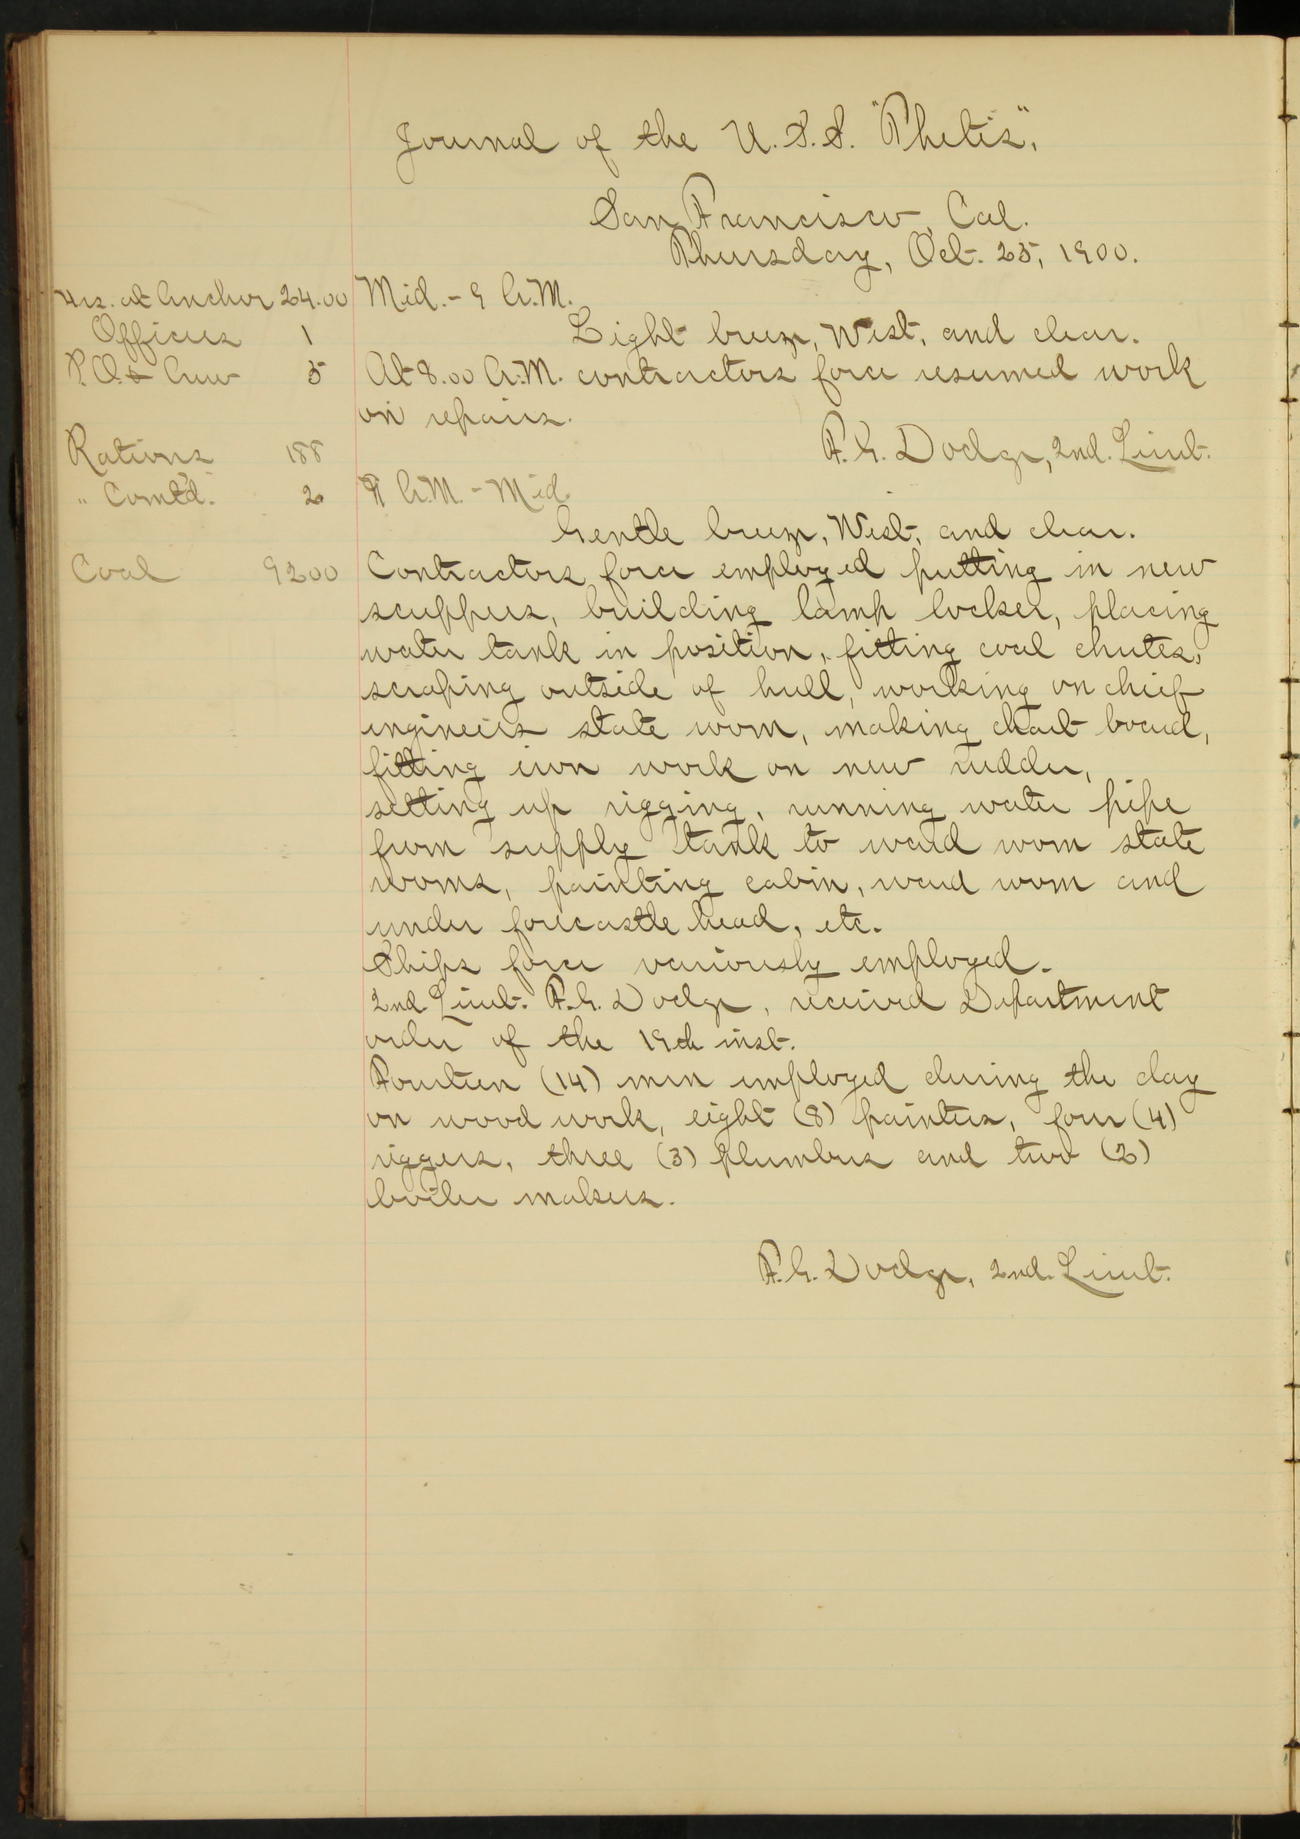 Journal of the U.S.S. "Thetis".
San Francisco, Cal.
Thursday, Oct. 25, 1900.
Hrs. at Anchor 24.00
Officers 1
P.O. & Crew 5
Rations 188
" Comt'd. 2
Coal 9200
Mid. - 9 A.M.
Light breeze, West, and clear.
At 8.00 A.M. contractors force resumed work
on repairs.
F.G. Dodge, 2nd. Lieut.
9 A.M. - Mid.
Gentle breeze, West, and clear.
Contractors force employed putting in new
scuppers, building lamp locker, placing
water tank in position, fitting coal chutes,
scraping outside of hull, working on chief
engineers state room, making chart board,
fitting iron work on new rudder,
setting up rigging, running water pipe
from supply tank to ward room state
rooms, painting cabin, ward room and
under forecastle head, etc.
Ships force variously employed.
2nd Lieut. F.G. Dodge, received Department
order of the 19th inst.
Fourteen (14) men employed during the day
on wood work, eight (8) painters, four (4)
riggers, three (3) plumbers and two (2)
boiler makers.
F.G. Dodge, 2nd. Lieut.